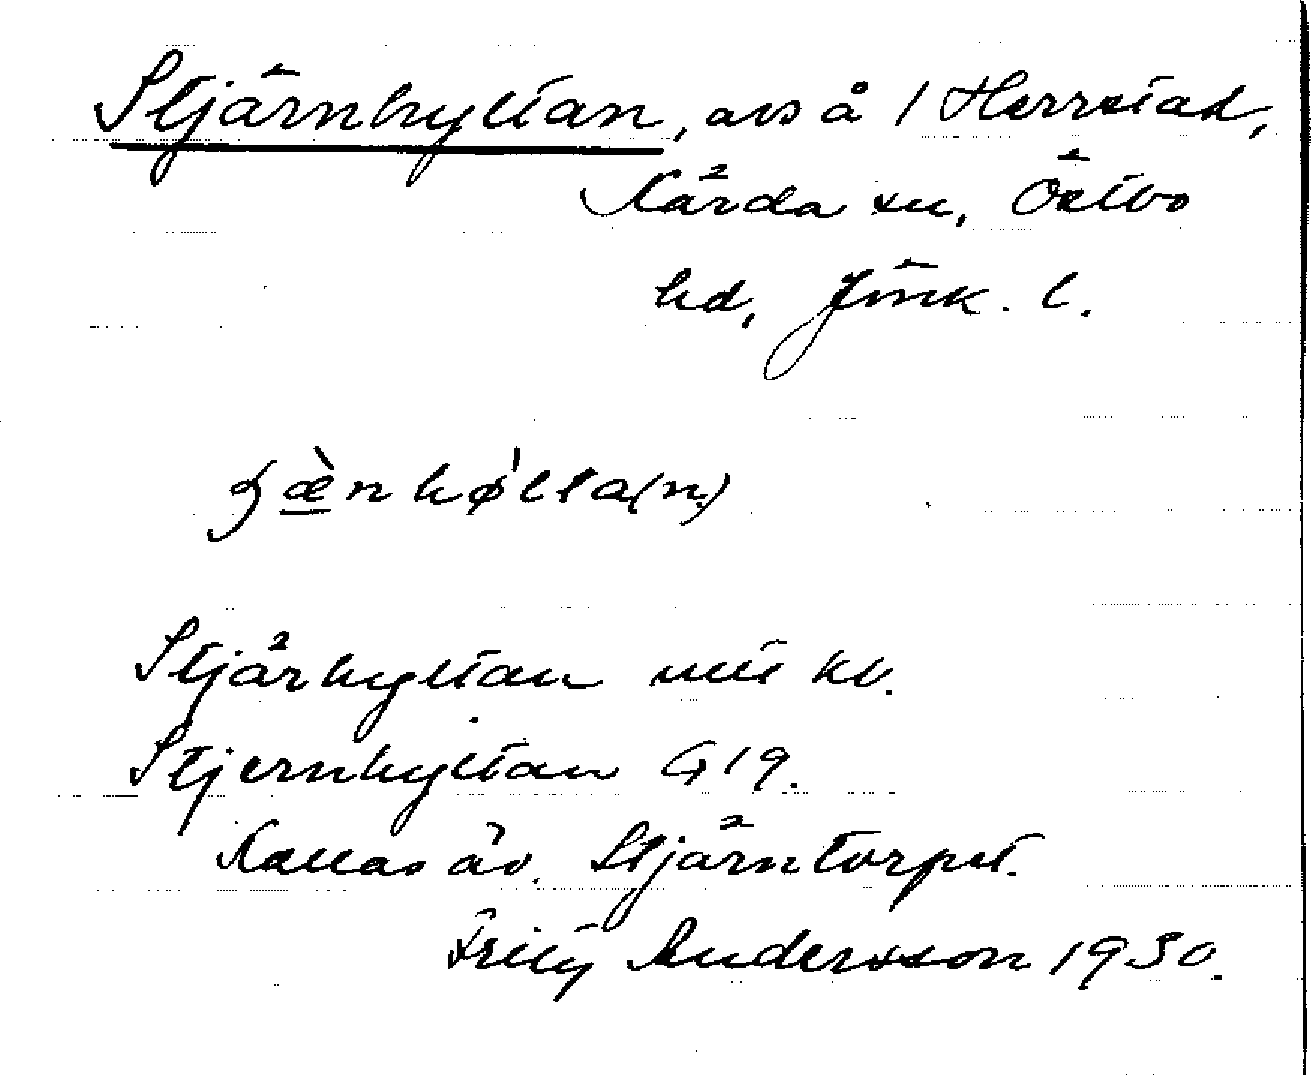 Stjärnhyltan, avs å 1 Herrstad,
Kärda sn, Östbo
hd, Jönk. l.
ʂæ̀nhøltˈa(n)
Stjärhyltan uut kv.
Stjernhyltan G 19.
Kallas äv. Stjärntorpet.
Fritz Andersson 1930.